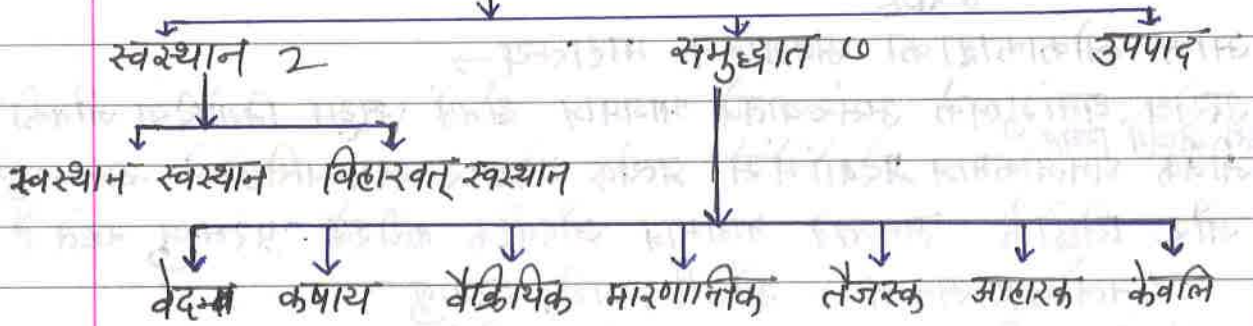 स्वस्थान 2 समुद्धात ७ उपपाद
स्वस्थान स्वस्थान विहारवत् स्वस्थान
वेदना कषाय वैक्रियिक मारणान्तिक तैजस्क आहारक केवलि